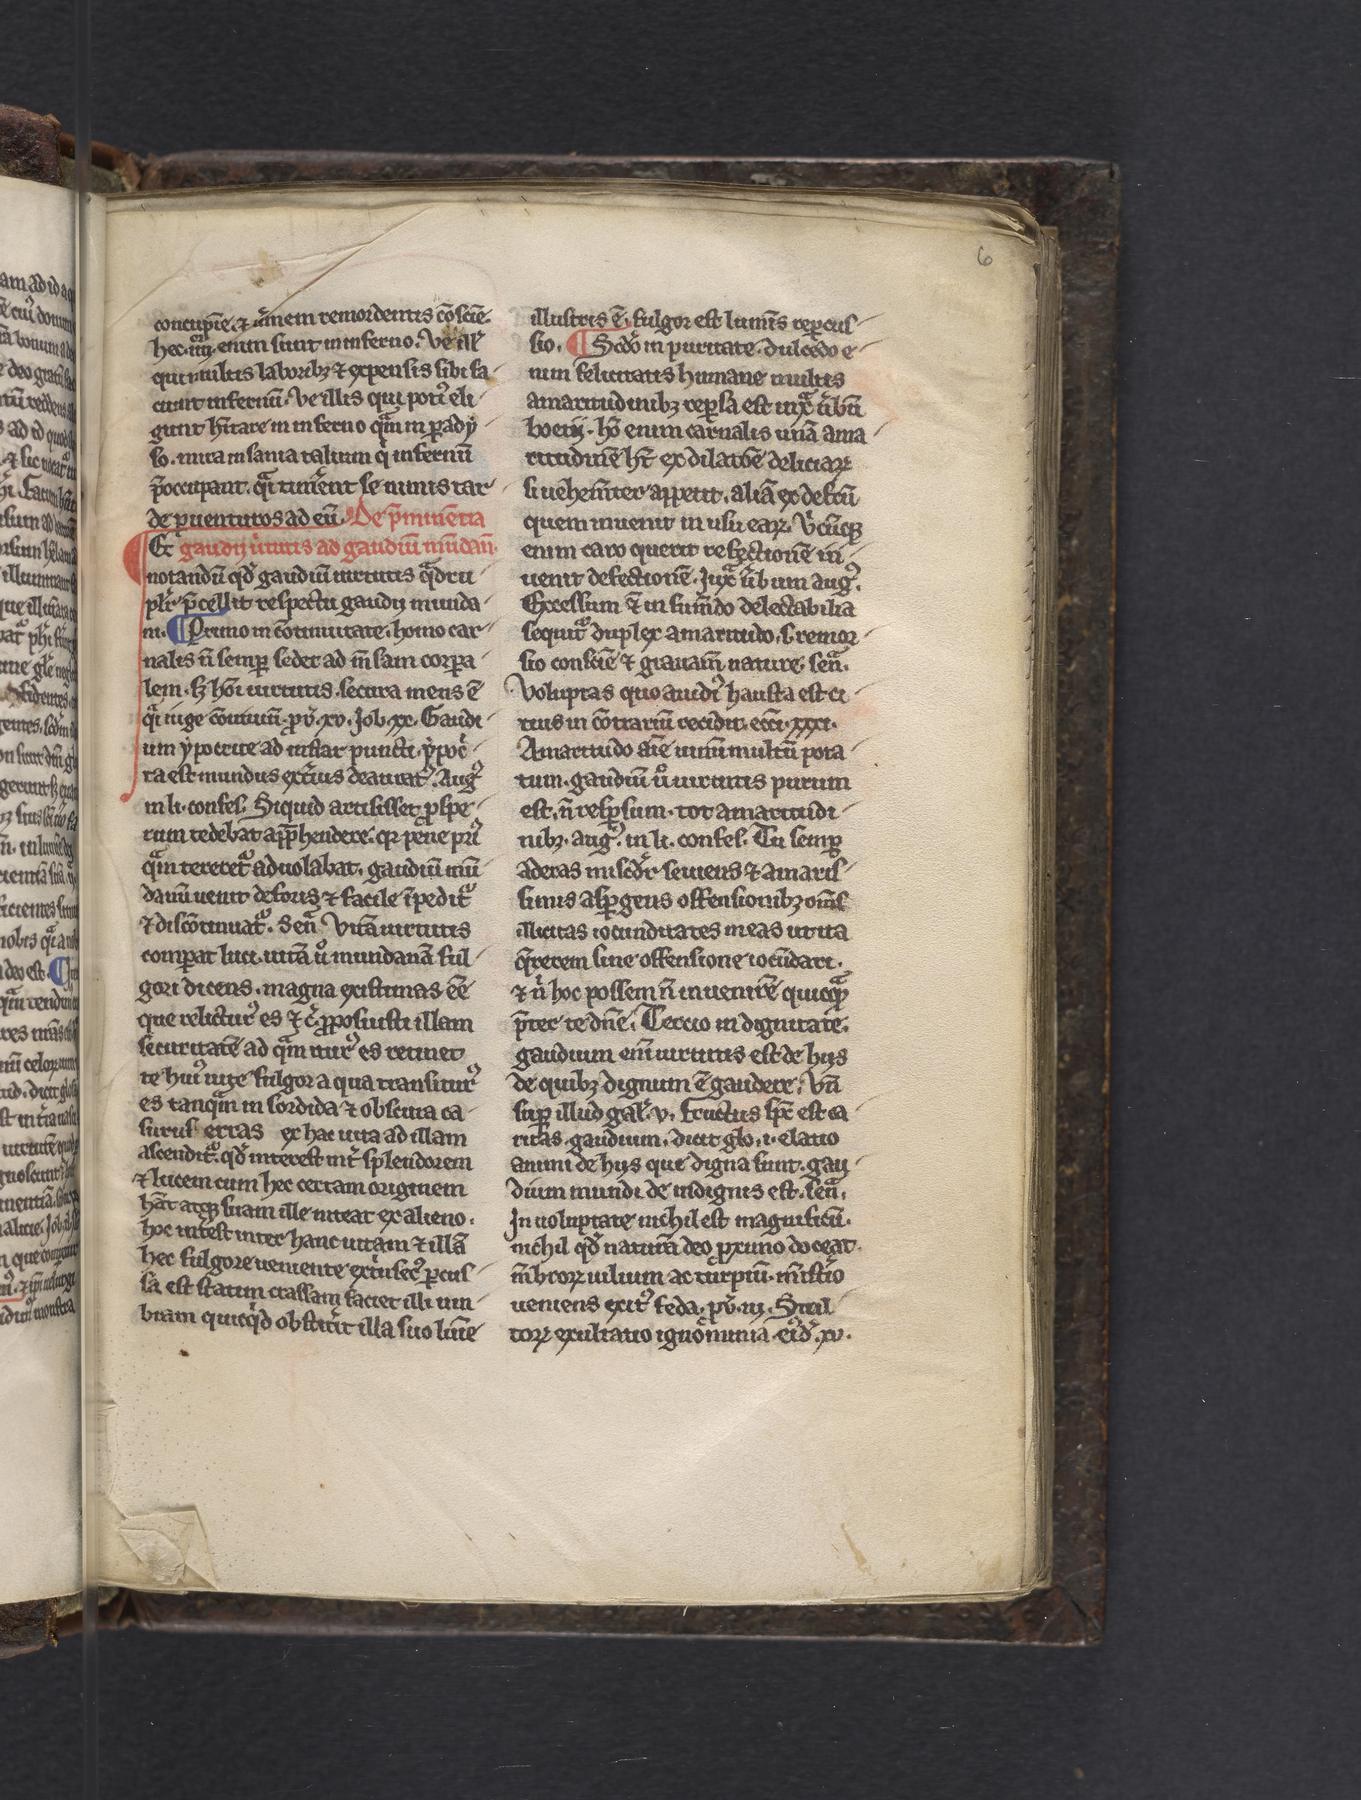 6
concupīe. & v̄mem remordentis cōsciē.
hec .iiij. enim sunt in inferno. Ve ill'
qui multis laboribꝫ & expensis sibi fa
ciunt infernū. Ve illis qui poti' eli
gunt hītare in inferno q̄m in paradẏ
so. mira insania talium q̇ infernū
p̄occupant. q̄i timēnt se nimis tar
de puenturos ad eū. De p̄minētia
Et gaudij ūtutis ad gaudiū mūdan̄.
notandū qd' gaudiū uirtutis q̄dru
plr̄ p̄cellit respectu gaudij munda
ni. Primo in cōtinuitate. homo car
nalis n̄ semp sedet ad m̄sam corpa
lem. sꝫ hōi uirtutis. secura mens ē
q̄i iuge cōuiuiū. pū. xv. Job. xx. Gaudi
um ẏpocrite ad instar puncti. ẏpoc̄
ta est mundus ext̄ius deaurat'. Aug'
in li. confes. Siquid arrisisset pspe
rum tedebat app̄hendere. qꝛ pene pri'
q̄m teneret̄ aduolabat. gaudiū mū
danū uenit deforis & facile īpedit̄
& discōtinuat̄. Sen̄ Vitā uirtutis
comparat luci. uitā ū mundanā ful
gori dicens. magna existimas ēē
que relictur' es & c̄ pposuisti illam
securitatē ad q̄m itur' es retinet
te hui' uite fulgor a qua transitur'
es tanq̄m in sordida & obscura ca
surus erras ex hac uita ad illam
ascendit̄. qd' interest int̄ splendorem
& lucem cum hec certam originem
hāt atqꝫ suam ille niteat ex alieno.
hoc intest inter hanc uitam & illā
hec fulgore ueniente ext̄insec' pcus
sa est statim crassam faciet illi um
bram quicq̇d obstit̄it illa suo lumīe
illustris ē. fulgor est lumīs repcus
sio. Scdō in puritate. dulcedo e
nim felicitatis humane multis
amaritudinibꝫ respsa est iux̄ ūbū
boetij. hō enim carnalis unā ama
ritudinē ht̄ ex dilatōe deliciaꝝ
si uehemt̄er appetit. aliā ex defcū
quem inuenit in usu eaꝝ. Vbicūqꝫ
enim caro querit refectionē in
uenit defectionē. Jux̄ ūbum aug'.
Excessum & in sumēdo delectabilia
sequit̄ duplex amaritudo. s. remor
sio consciē & grauam̄ nature. sen̄.
Voluptas quo auidi' hausta est ci
tius in cōtrariū recidit. ecci. xxxi.
Amaritudo aīe uinū multū pota
tum. gaudiū ū uirtutis purum
est. n̄ respsum. tot amaritudi
nibꝫ. aug'. in li. confes. Tu semp
aderas misc̄dr̄ seuiens & amaris
simis aspgens offensionibꝫ oms̄
illicitas iocunditates meas ut ita
q̄rerem sine offensione iocūdari.
& ū hoc possem n̄ inuenirē quicq̄
p̄ter te dn̄e. Tercio in dignitate.
gaudium enī uirtutis est de hijs
de quibꝫ dignum ē gaudere. Vn̄
sup illud gal'. v. fructus sp̄c est ca
ritas. gaudium. dicit glo. i. elatio
animi de hijs que digna sunt. gau
dium mundi de indignis est. sen̄.
In uoluptate nichil est magnificū.
nichil qd' naturā deo pximo doceat.
m̄broꝝ uilium ac turpiū. mīst̄io
ueniens exit' feda. pū. iij. Stul
toꝝ exultatio ignōminia. ei'd'. xv.